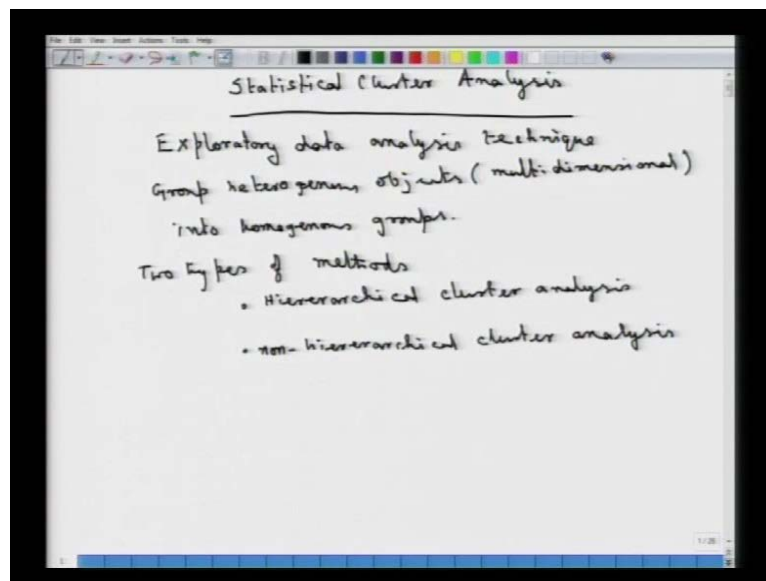 File Edit View Insert Actions Tools Help
Statistical Cluster Analysis
Exploratory data analysis technique
Group heterogenous objects (multi-dimensional)
into homogenous groups.
Two types of methods
• Hiererarchical cluster analysis
• non-hiererarchical cluster analysis
1/28